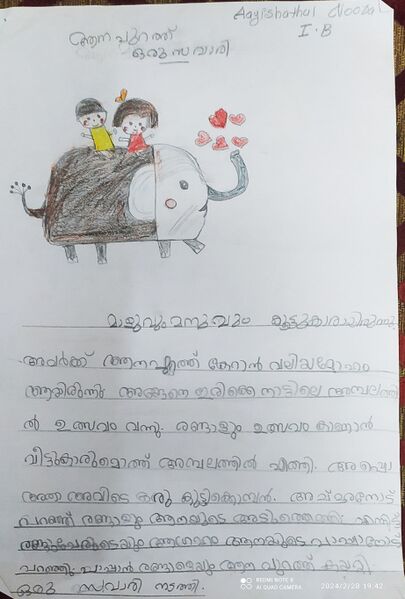 Aayishathul Nooda
I·B
ആന പുറത്ത്
ഒരു സവാരി
മാളുവും മനുവും കൂട്ടുകാരായിരുന്നു
അവർക്ക് ആനപ്പുറത്ത് കേറാൻ വലിയമോഹം
ആയിരുന്നു അങ്ങനെ ഇരിക്കെ നാട്ടിലെ അമ്പലത്തി
ൽ ഉത്സവം വന്നു. രണ്ടാളും ഉത്സവം കാണാൻ
വീട്ടുകാരുമൊത്ത് അമ്പലത്തിൽ എത്തി.
അവിടെ ഒരു കുട്ടിക്കൊമ്പൻ. അച്ഛനോട്
പറഞ്ഞു രണ്ടാളും ആനയുടെ അടുത്തെത്തി.
ആനയുടെ പാപ്പാനോട്
പറഞ്ഞു. പാപ്പാൻ രണ്ടാളെയും ആന പുറത്ത് കയറ്റി
ഒരു സവാരി നടത്തി.
REDMI NOTE 8
AI QUAD CAMERA
2024/2/28 19:42